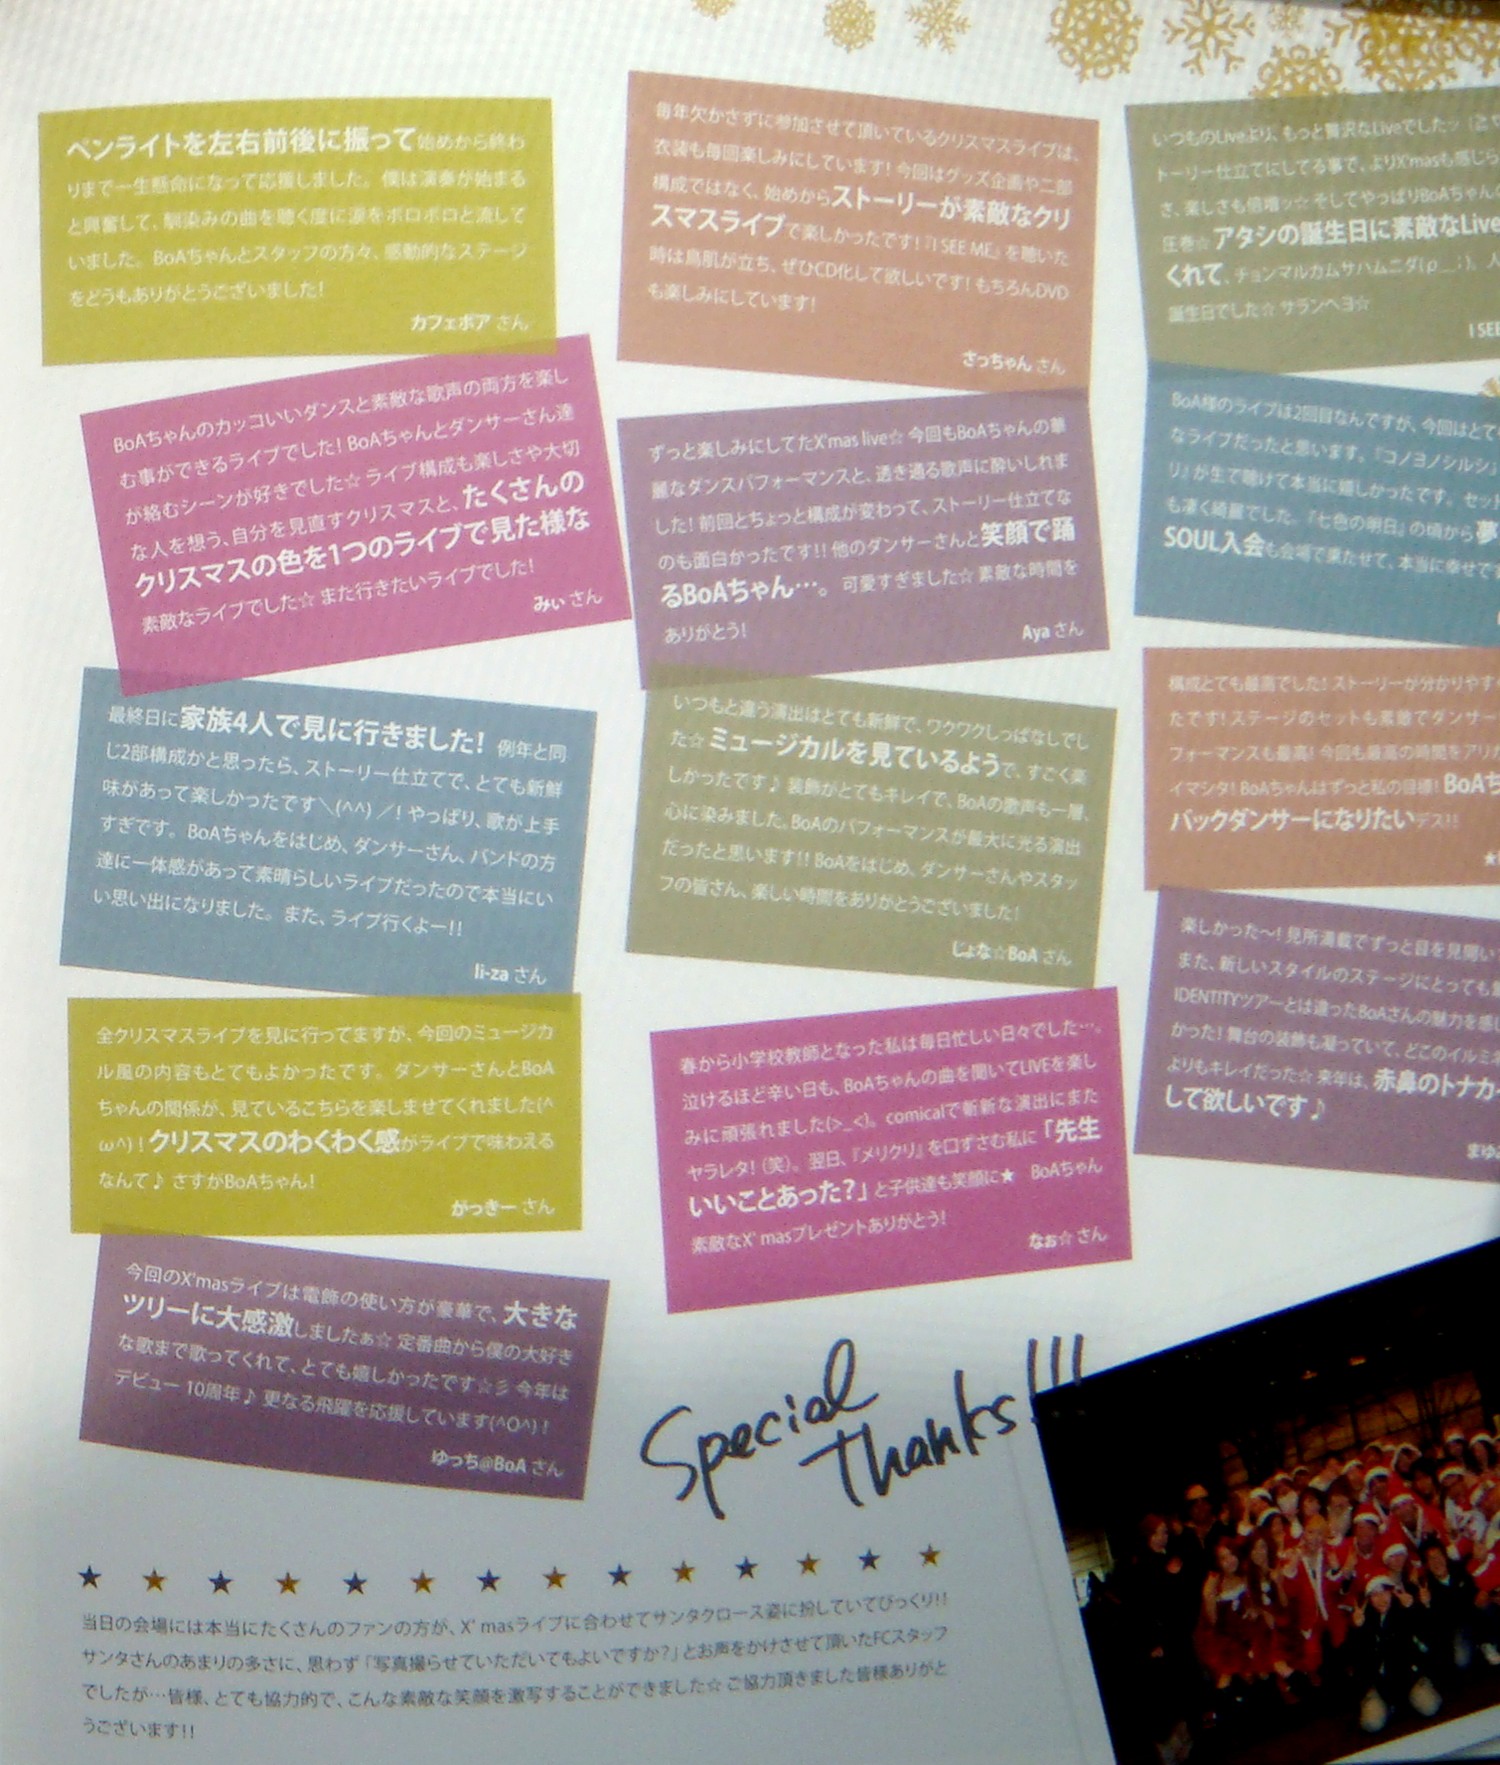 ペンライトを左右前後に振って始めから終わ
りまで一生懸命になって応援しました。僕は演奏が始まる
と興奮して、馴染みの曲を聴く度に涙をボロボロと流して
いました。BoAちゃんとスタッフの方々、感動的なステージ
をどうもありがとうございました!
カフェボア さん
BoAちゃんのカッコいいダンスと素敵な歌声の両方を楽し
む事ができるライブでした! BoAちゃんとダンサーさん達
が絡むシーンが好きでした☆ ライブ構成も楽しさや大切
な人を想う、自分を見直すクリスマスと、たくさんの
クリスマスの色を1つのライブで見た様な
素敵なライブでした☆ また行きたいライブでした!
みぃ さん
最終日に家族4人で見に行きました! 例年と同
じ2部構成かと思ったら、ストーリー仕立てで、とても新鮮
味があって楽しかったです＼(^^)／! やっぱり、歌が上手
すぎです。BoAちゃんをはじめ、ダンサーさん、バンドの方
達に一体感があって素晴らしいライブだったので本当にい
い思い出になりました。また、ライブ行くよー!!
li-za さん
全クリスマスライブを見に行ってますが、今回のミュージカ
ル風の内容もとてもよかったです。ダンサーさんとBoA
ちゃんの関係が、見ているこちらを楽しませてくれました(^
ω^)! クリスマスのわくわく感がライブで味わえる
なんて♪ さすがBoAちゃん!
がっきー さん
今回のX'masライブは電飾の使い方が豪華で、大きな
ツリーに大感激しましたぁ☆ 定番曲から僕の大好き
な歌まで歌ってくれて、とても嬉しかったです☆彡 今年は
デビュー 10周年♪ 更なる飛躍を応援しています(^O^)!
ゆっち@BoA さん
毎年欠かさずに参加させて頂いているクリスマスライブは、
衣装も毎回楽しみにしています! 今回はグッズ企画や二部
構成ではなく、始めからストーリーが素敵なクリ
スマスライブで楽しかったです!『I SEE ME』を聴いた
時は鳥肌が立ち、ぜひCD化して欲しいです! もちろんDVD
も楽しみにしています!
さっちゃん さん
ずっと楽しみにしてたX'mas live☆ 今回もBoAちゃんの華
麗なダンスパフォーマンスと、透き通る歌声に酔いしれま
した! 前回とちょっと構成が変わって、ストーリー仕立てな
のも面白かったです!! 他のダンサーさんと笑顔で踊
るBoAちゃん…。可愛すぎました☆ 素敵な時間を
ありがとう!
Aya さん
いつもと違う演出はとても新鮮で、ワクワクしっぱなしでし
た☆ ミュージカルを見ているようで、すごく楽
しかったです♪ 装飾がとてもキレイで、BoAの歌声も一層、
心に染みました。BoAのパフォーマンスが最大に光る演出
だったと思います!! BoAをはじめ、ダンサーさんやスタッ
フの皆さん、楽しい時間をありがとうございました!
じょな☆BoA さん
春から小学校教師となった私は毎日忙しい日々でした…。
泣けるほど辛い日も、BoAちゃんの曲を聞いてLIVEを楽し
みに頑張れました(>_<)。comicalで斬新な演出にまた
ヤラレタ!（笑）。翌日、『メリクリ』を口ずさむ私に「先生
いいことあった?」と子供達も笑顔に★ BoAちゃん
素敵なX' masプレゼントありがとう!
なぉ☆ さん
いつものLiveより、もっと贅沢なLiveでしたッ
トーリー仕立てにしてる事で、よりX'masも感じら
さ、楽しさも倍増ッ☆ そしてやっぱりBoAちゃんの
圧巻☆ アタシの誕生日に素敵なLive
くれて、チョンマルカムサハムニダ(ρ＿;)。人
誕生日でした☆ サランヘヨ☆
I SEE
BoA様のライブは2回目なんですが、今回はとて
なライブだったと思います。『コノヨノシルシ』
リ』が生で聴けて本当に嬉しかったです。セット
も凄く綺麗でした。『七色の明日』の頃から夢
SOUL入会も会場で果たせて、本当に幸せで
構成とても最高でした! ストーリーが分かりやす
たです! ステージのセットも素敵でダンサー
フォーマンスも最高! 今回も最高の時間をアリガ
イマシタ! BoAちゃんはずっと私の目標! BoAち
バックダンサーになりたいデス!!
★
楽しかった〜! 見所満載でずっと目を見開い
また、新しいスタイルのステージにとっても
IDENTITYツアーとは違ったBoAさんの魅力を感じ
かった! 舞台の装飾も凝っていて、どこのイルミネ
よりもキレイだった☆ 来年は、赤鼻のトナカイ
して欲しいです♪
まゆ
Special
Thanks!!!
当日の会場には本当にたくさんのファンの方が、X' masライブに合わせてサンタクロース姿に扮していてびっくり!!
サンタさんのあまりの多さに、思わず「写真撮らせていただいてもよいですか?」とお声をかけさせて頂いたFCスタッフ
でしたが…皆様、とても協力的で、こんな素敵な笑顔を激写することができました☆ ご協力頂きました皆様ありがと
うございます!!